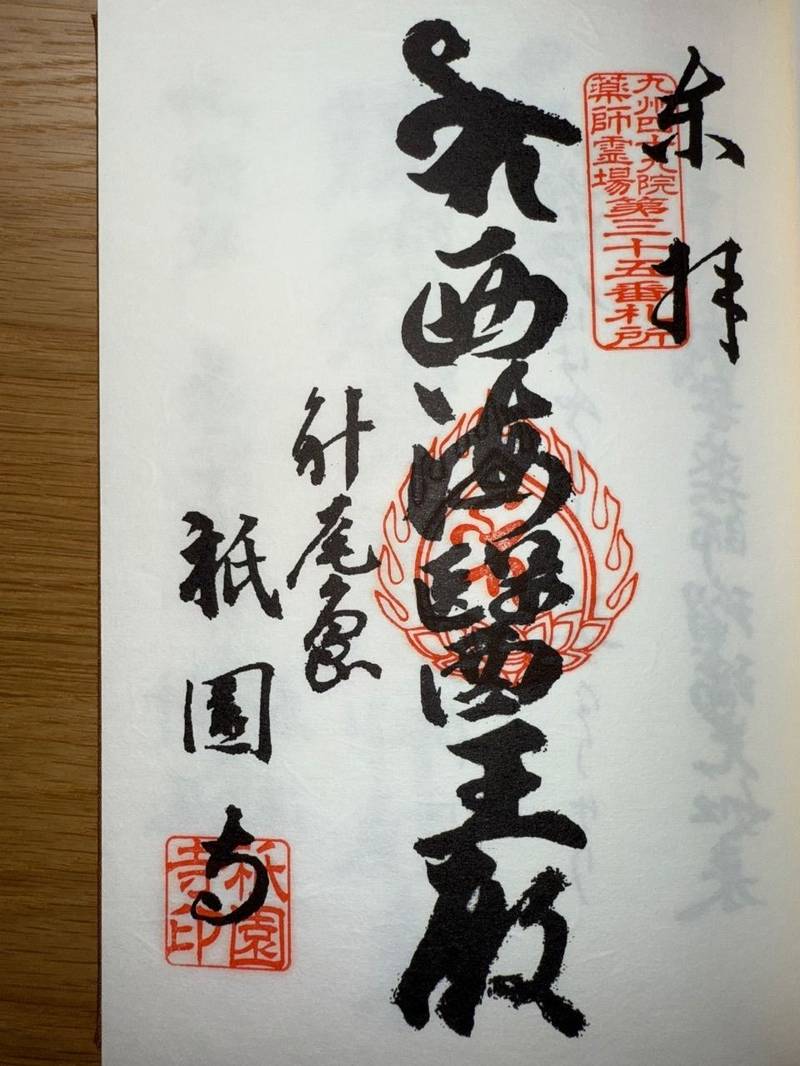 来拝
九州四十九院
薬師霊場
第三十五番札所
西海醫王殿
針尾島
祇園寺
祇園
寺印